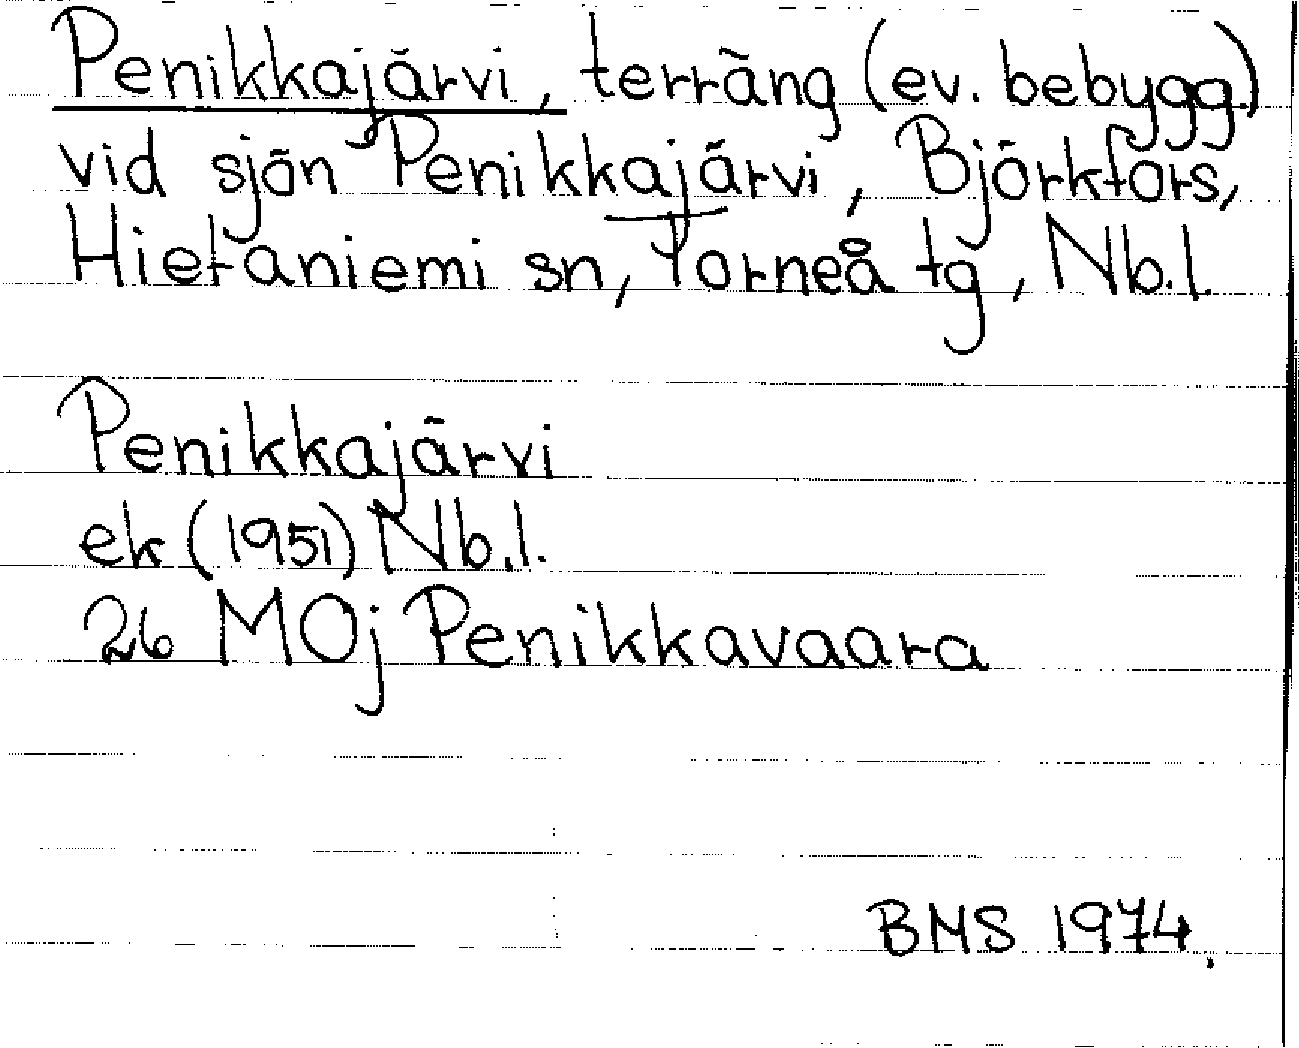 Penikkajärvi, terräng (ev. bebygg.)
vid sjön Penikkajärvi, Björkfors,
Hietaniemi sn, Torneå tg, Nb.l.
Penikkajärvi
ek (1951) Nb.l.
26 M0j Penikkavaara
BMS 1974.